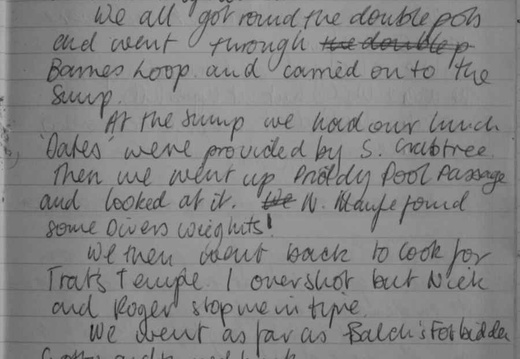 We all got round the double pots
and went through the double p
Barnes Loop and carried on to the
Sump.
At the sump we had our lunch
'Dates' were provided by S. Crabtree.
Then we went up Priddy Pool Passage
and looked at it. We N. found
some Divers weights!
We then went back to look for
Trat's Temple. I overshot but Nick
and Roger stop me in time.
We went as far as Balch's Forbidden